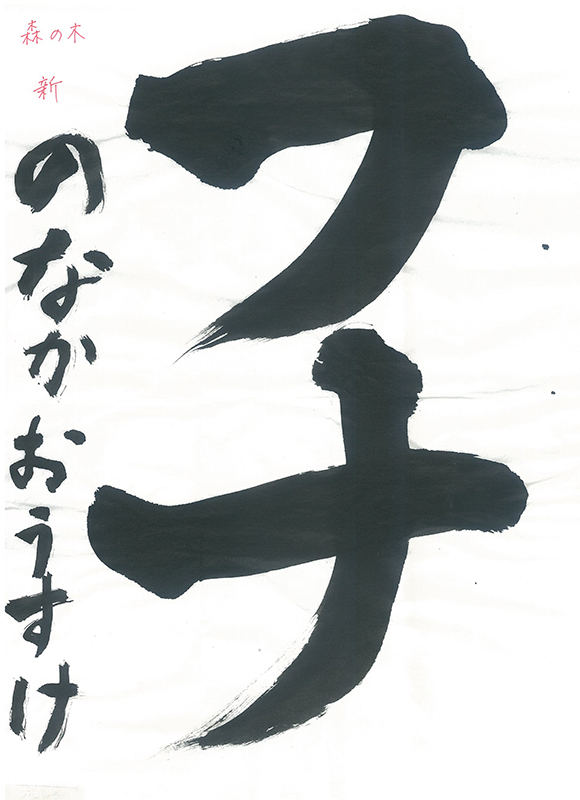 フナ
森の木
新
のなかおうすけ